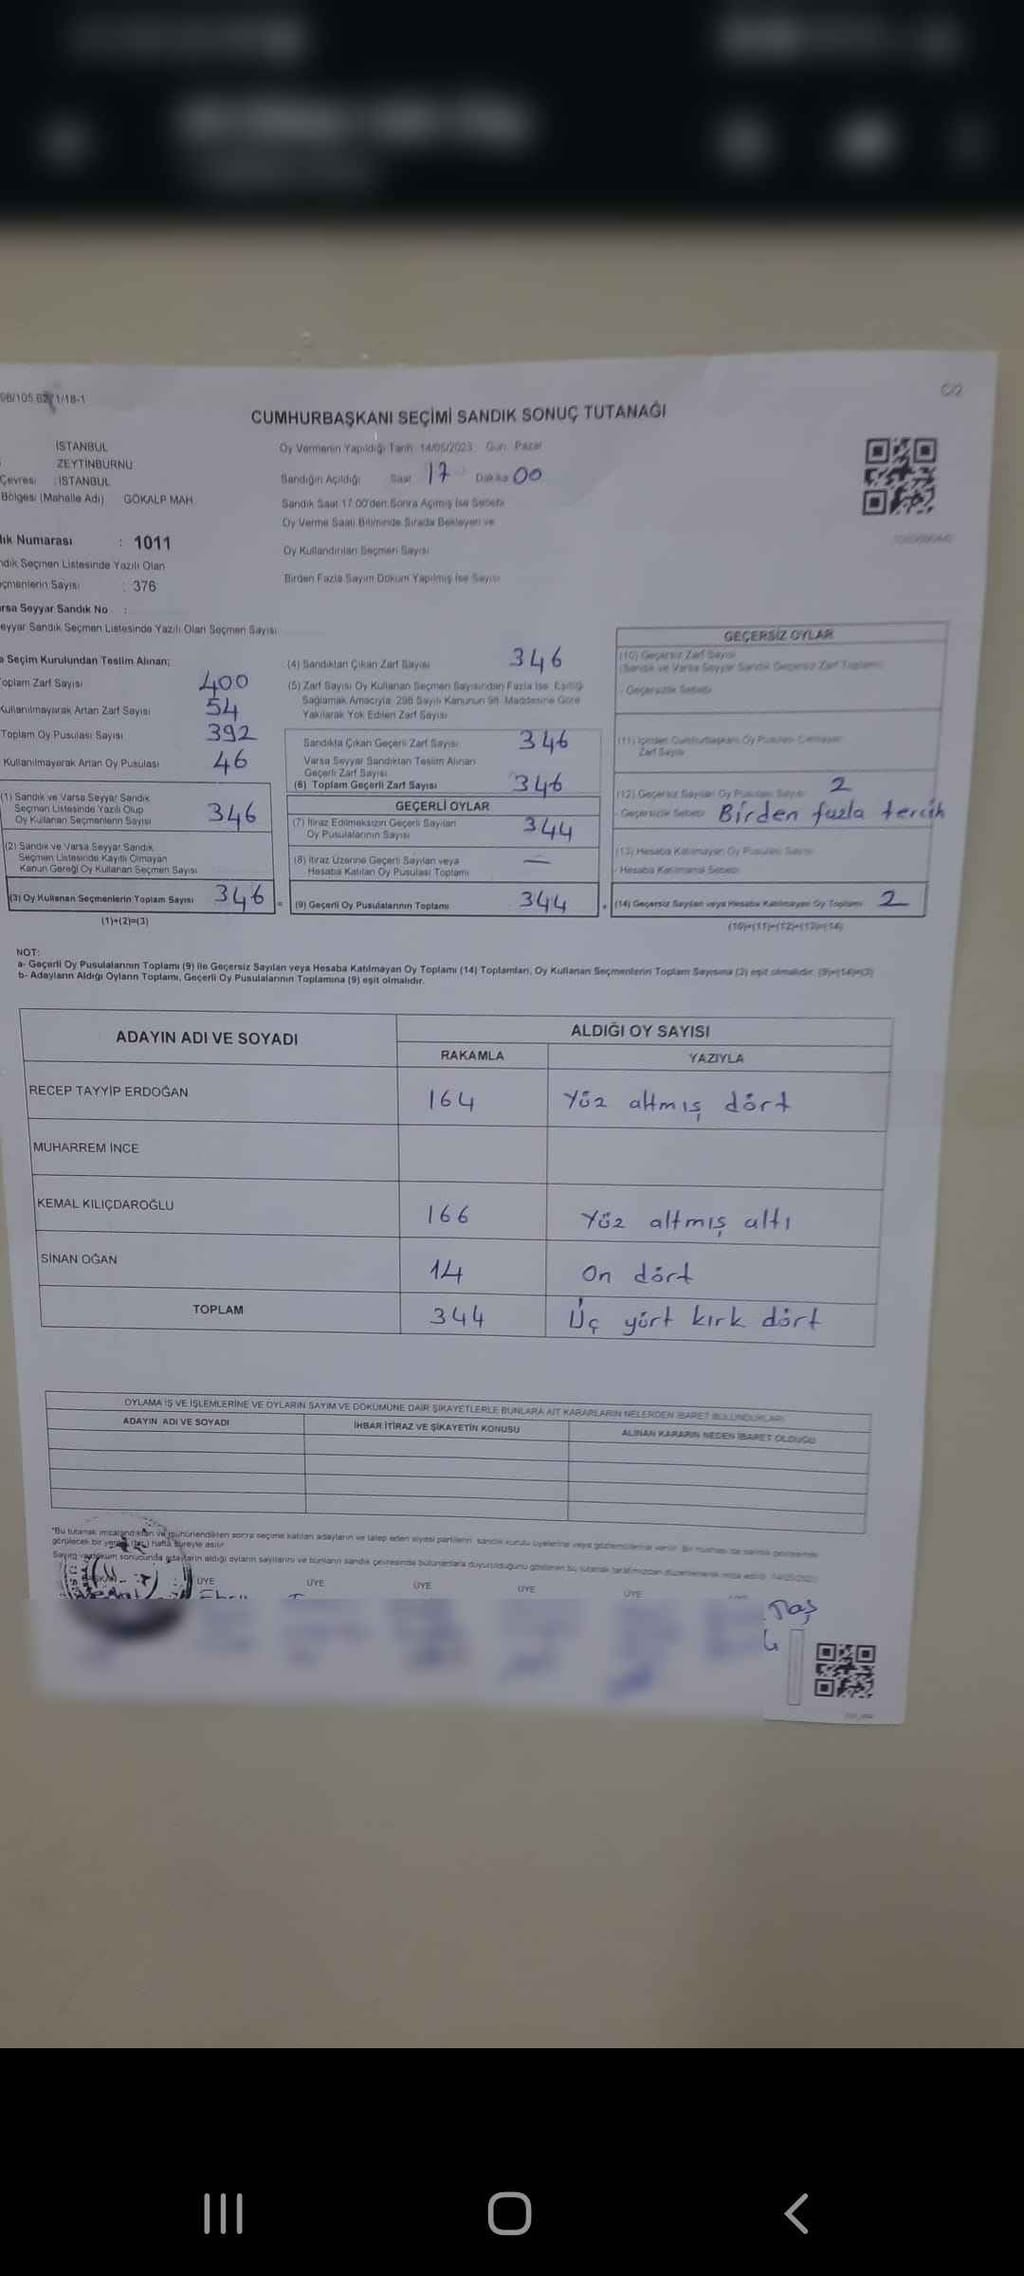 CUMHURBAŞKANI SEÇİMİ SANDIK SONUÇ TUTANAĞI
İSTANBUL
ZEYTİNBURNU
Çevresi : İSTANBUL
Bölgesi (Mahalle Adı) GÖKALP MAH.
Oy Vermenin Yapıldığı Tarih: 14/05/2023 Gün: Pazar
Sandığın Açıldığı Saat 17 Dakika 00
Sandık Saat 17.00'den Sonra Açılmış İse Sebebi
Oy Verme Saati Bitiminde Sırada Bekleyen ve
Oy Kullandırılan Seçmen Sayısı
Birden Fazla Sayım Döküm Yapılmış İse Sayısı
lık Numarası : 1011
ndık Seçmen Listesinde Yazılı Olan
çmenlerin Sayısı : 376
arsa Seyyar Sandık No :
eyyar Sandık Seçmen Listesinde Yazılı Olan Seçmen Sayısı
Seçim Kurulundan Teslim Alınan;
oplam Zarf Sayısı 400
Kullanılmayarak Artan Zarf Sayısı 54
Toplam Oy Pusulası Sayısı 392
Kullanılmayarak Artan Oy Pusulası 46
(1) Sandık ve Varsa Seyyar Sandık
Seçmen Listesinde Yazılı Olup
Oy Kullanan Seçmenlerin Sayısı 346
(2) Sandık ve Varsa Seyyar Sandık
Seçmen Listesinde Kayıtlı Olmayan
Kanun Gereği Oy Kullanan Seçmen Sayısı
(3) Oy Kullanan Seçmenlerin Toplam Sayısı 346
(1)+(2)=(3)
(4) Sandıktan Çıkan Zarf Sayısı 346
(5) Zarf Sayısı Oy Kullanan Seçmen Sayısından Fazla İse, Eşitliği
Sağlamak Amacıyla 298 Sayılı Kanunun 98. Maddesine Göre
Yakılarak Yok Edilen Zarf Sayısı
Sandıkta Çıkan Geçerli Zarf Sayısı 346
Varsa Seyyar Sandıktan Teslim Alınan
Geçerli Zarf Sayısı
(6) Toplam Geçerli Zarf Sayısı 346
GEÇERLİ OYLAR
(7) İtiraz Edilmeksizin Geçerli Sayılan
Oy Pusulalarının Sayısı 344
(8) İtiraz Üzerine Geçerli Sayılan veya
Hesaba Katılan Oy Pusulası Toplamı —
(9) Geçerli Oy Pusulalarının Toplamı 344
GEÇERSİZ OYLAR
(10) Geçersiz Zarf Sayısı
(Sandık ve Varsa Seyyar Sandık Geçersiz Zarf Toplamı)
- Geçersizlik Sebebi
Zarf Sayısı
(12) Geçersiz Sayılan Oy Pusulası Sayısı 2
- Geçersizlik Sebebi Birden fazla tercih
(13) Hesaba Katılmayan Oy Pusulası Sayısı
- Hesaba Katılmama Sebebi
(14) Geçersiz Sayılan veya Hesaba Katılmayan Oy Toplamı 2
(10)+(11)+(12)+(13)=(14)
NOT:
a- Geçerli Oy Pusulalarının Toplamı (9) ile Geçersiz Sayılan veya Hesaba Katılmayan Oy Toplamı (14) Toplamları, Oy Kullanan Seçmenlerin Toplam Sayısına (3) eşit olmalıdır. (9)+(14)=(3)
b- Adayların Aldığı Oyların Toplamı, Geçerli Oy Pusulalarının Toplamına (9) eşit olmalıdır.
ADAYIN ADI VE SOYADI
ALDIĞI OY SAYISI
RAKAMLA YAZIYLA
RECEP TAYYİP ERDOĞAN 164 Yüz altmış dört
MUHARREM İNCE
KEMAL KILIÇDAROĞLU 166 Yüz altmış altı
SİNAN OĞAN 14 On dört
TOPLAM 344 Üç yürt kırk dört
OYLAMA İŞ VE İŞLEMLERİNE VE OYLARIN SAYIM VE DÖKÜMÜNE DAİR ŞİKAYETLERLE BUNLARA AİT KARARLARIN NELERDEN İBARET BULUNDUKLARI
ADAYIN ADI VE SOYADI İHBAR İTİRAZ VE ŞİKAYETİN KONUSU ALINAN KARARIN NEDEN İBARET OLDUĞU
ÜYE ÜYE ÜYE ÜYE ÜYE